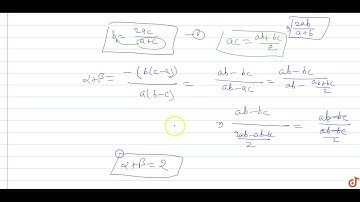 b = 2ac/a+c ac = ab+bc/2 2ab/a+b
α+β = -(b(c-a))/a(b-c) = ab-bc/ab-ac = ab-bc/ab-ab+bc/2
⇒ ab-bc/2ab-ab-bc/2 = ab-bc/ab-bc/2
α+β = 2